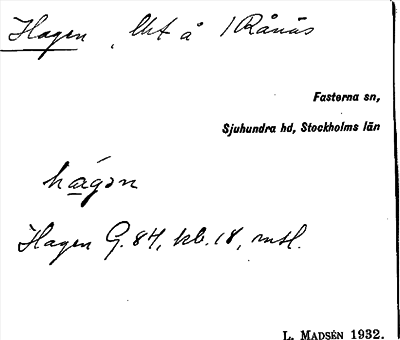 Hagen, lht å /Rånäs
Fasterna sn,
Sjuhundra hd, Stockholms län
hágən
Hagen G.84, kb.18, mtl.
L. MADSÉN 1932.